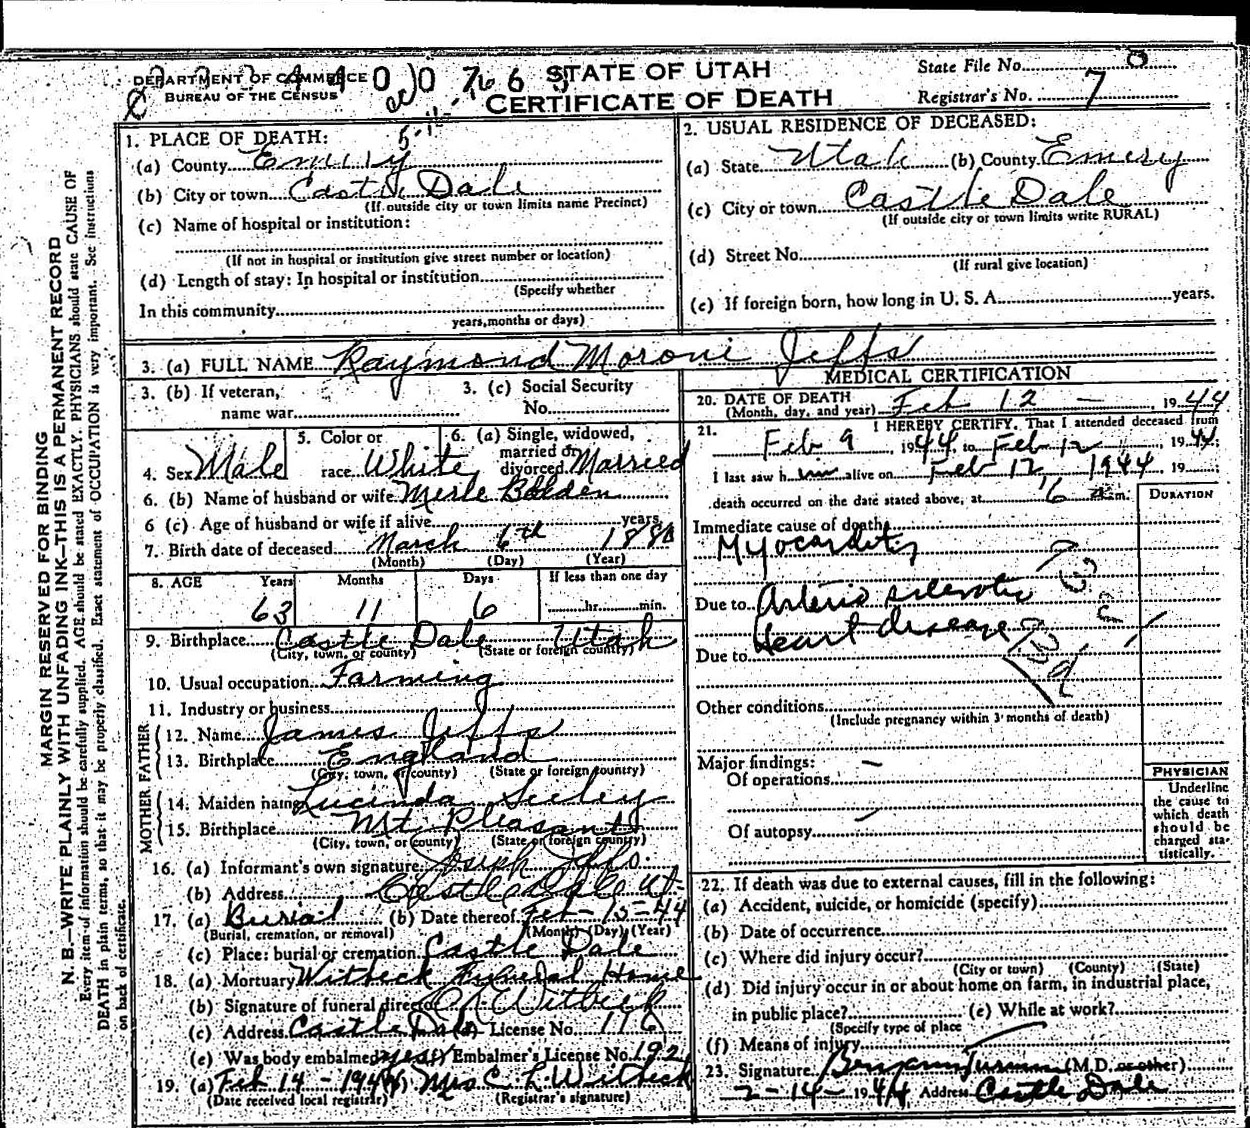 DEPARTMENT OF COMMERCE
BUREAU OF THE CENSUS
STATE OF UTAH
CERTIFICATE OF DEATH
State File No.
Registrar's No. 7
MARGIN RESERVED FOR BINDING
N. B.—WRITE PLAINLY WITH UNFADING INK—THIS IS A PERMANENT RECORD
Every item of information should be carefully supplied. AGE should be stated EXACTLY. PHYSICIANS should state CAUSE OF
DEATH in plain terms, so that it may be properly classified. Exact statement of OCCUPATION is very important. See instructions
on back of certificate.
1. PLACE OF DEATH:
(a) County Emery
(b) City or town Castle Dale
(If outside city or town limits name Precinct)
(c) Name of hospital or institution:
(If not in hospital or institution give street number or location)
(d) Length of stay: In hospital or institution
(Specify whether
In this community
years, months or days)
2. USUAL RESIDENCE OF DECEASED:
(a) State Utah (b) County Emery
(c) City or town Castle Dale
(If outside city or town limits write RURAL)
(d) Street No.
(If rural give location)
(e) If foreign born, how long in U. S. A. years.
3. (a) FULL NAME Raymond Moroni Jeffs
3. (b) If veteran,
name war
3. (c) Social Security
No.
4. Sex Male
5. Color or
race White
6. (a) Single, widowed,
married or
divorced Married
6. (b) Name of husband or wife Merle
6 (c) Age of husband or wife if alive years
7. Birth date of deceased March 6th 1880
(Month) (Day) (Year)
8. AGE Years Months Days If less than one day
63 11 6 hr. min.
9. Birthplace Castle Dale Utah
(City, town, or county) (State or foreign country)
10. Usual occupation Farming
11. Industry or business
FATHER
12. Name James Jeffs
13. Birthplace England
(City, town, or county) (State or foreign country)
MOTHER
14. Maiden name Lucinda Seeley
15. Birthplace Mt. Pleasant
(City, town, or county) (State or foreign country)
16. (a) Informant's own signature Joseph Jeffs.
(b) Address Castle Dale Ut.
17. (a) Burial (b) Date thereof Feb-15-44
(Burial, cremation, or removal) (Month) (Day) (Year)
(c) Place: burial or cremation Castle Dale
18. (a) Mortuary Witbeck Funeral Home
(b) Signature of funeral director Witbeck
(c) Address Castle Dale License No. 116
(e) Was body embalmed yes Embalmer's License No. 192
19. (a) Feb 14-1944 (b) Mrs C. L. Witbeck
(Date received local registrar) (Registrar's signature)
MEDICAL CERTIFICATION
20. DATE OF DEATH
(Month, day, and year) Feb 12 - 1944
21. I HEREBY CERTIFY, That I attended deceased from
Feb 9, 1944, to Feb 12, 1944;
I last saw him alive on Feb 12, 1944 19
death occurred on the date stated above, at 6 m.
DURATION
Immediate cause of death
Myocarditis
Due to Arterio sclerotic
Heart disease
Due to
Other conditions
(Include pregnancy within 3 months of death)
Major findings: -
Of operations
Of autopsy
PHYSICIAN
Underline
the cause to
which death
should be
charged sta-
tistically.
22. If death was due to external causes, fill in the following:
(a) Accident, suicide, or homicide (specify)
(b) Date of occurrence
(c) Where did injury occur?
(City or town) (County) (State)
(d) Did injury occur in or about home on farm, in industrial place,
in public place? (e) While at work?
(Specify type of place
(f) Means of injury
23. Signature Benjamin Turman (M.D. or other)
2-14-1944 Address Castle Dale